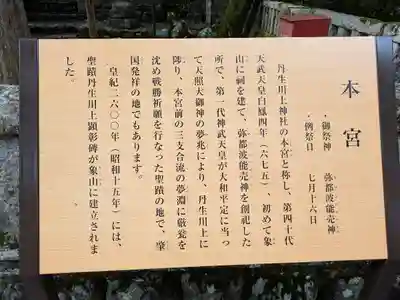 本宮
・御祭神　弥都波能売神
・例祭日　七月十六日
丹生川上神社の本宮と称し、第四十代
天武天皇白鳳四年（六七五）、初めて象
山に祠を建て、弥都波能売神を創祀した
所で、第一代神武天皇が大和平定に当っ
て天照大御神の夢兆により、丹生川上に
陟り、本宮前の三支合流の夢淵に厳瓮を
沈め戦勝祈願を行なった聖蹟の地で、肇
国発祥の地でもあります。
皇紀二六〇〇年（昭和十五年）には、
聖蹟丹生川上顕彰碑が象山に建立されま
した。